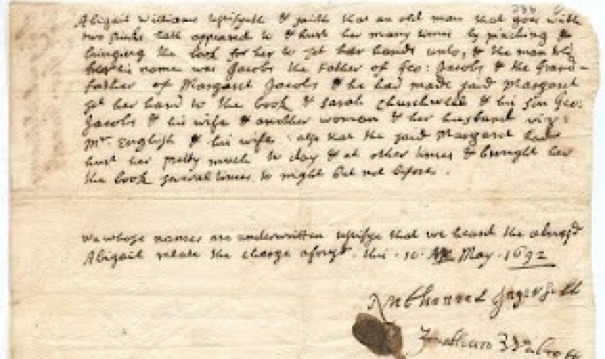 Abigail Williams testifyeth & saith that an old man that goes with
two sticks hath appeared to & hurt her many times by pinching &
bringing the book for her to set her hand unto, & the man told
her his name was Jacobs the Father of Geo: Jacobs & the Grand-
father of Margaret Jacobs & he had made said Margaret
set her hand to the book & Sarah Churchwell & his son Geo:
Jacobs & his wife & another woman & her husband viz:
Mr. English & his wife: also that the said Margaret had
hurt her pretty much to day & at other times & brought her
the book several times to night but not before.
We whose names are underwritten testifye that we heard the abovesd
Abigail relate the charge aforesd. this 10. May. 1692
Nathanael Ingersoll
Jonathan